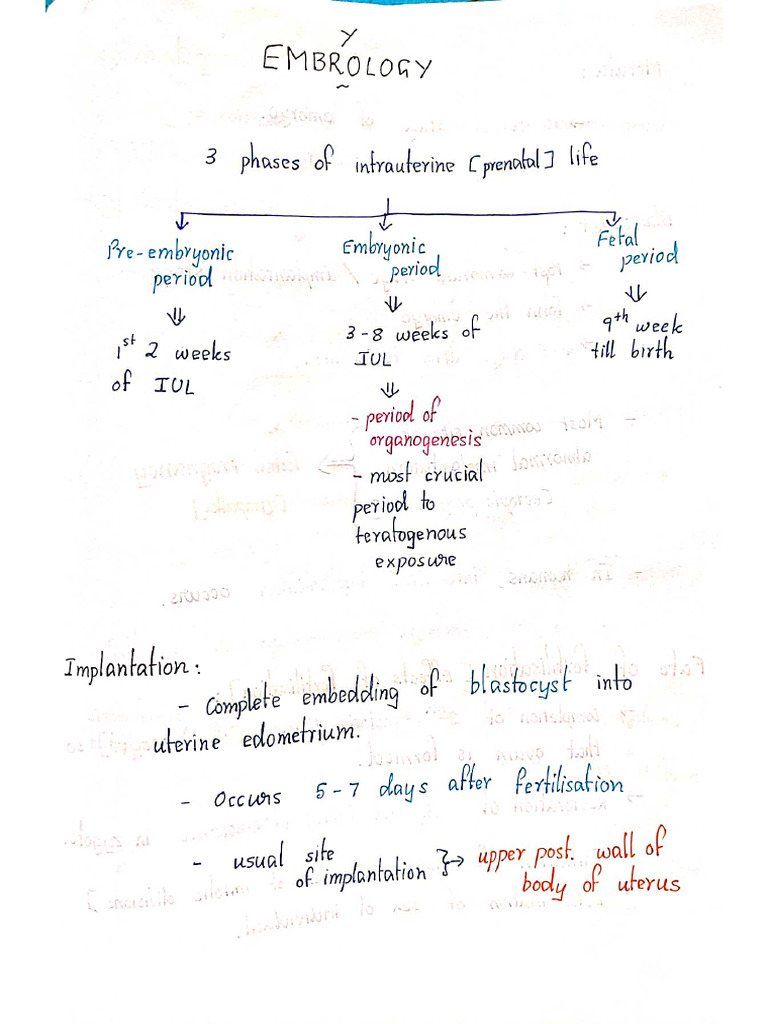 Y
EMBROLOGY
3 phases of intrauterine [prenatal] life
Pre-embryonic
period
1st 2 weeks
of IUL
Embryonic
period
3-8 weeks of
IUL
- period of
organogenesis
- most crucial
period to
teratogenous
exposure
Fetal
period
9th week
till birth
Implantation:
- Complete embedding of blastocyst into
uterine edometrium.
- Occurs 5-7 days after fertilisation
- usual site
of implantation } → upper post. wall of
body of uterus